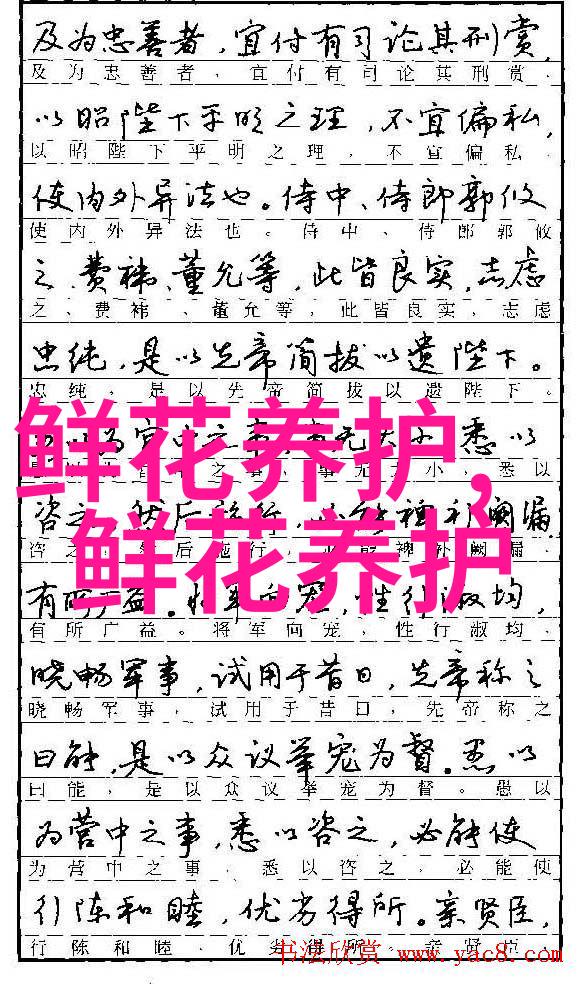 及为忠善者，宜付有司论其刑赏，
及为忠善者，宜付有司论其刑赏，
以昭陛下平明之理，不宜偏私，
以昭陛下平明之理，不宜偏私，
使内外异法也。侍中、侍郎郭攸
使内外异法也。侍中、侍郎郭攸
之、费祎、董允等，此皆良实，志虑
之、费祎、董允等，此皆良实，志虑
忠纯，是以先帝简拔以遗陛下。
忠纯，是以先帝简拔以遗陛下。
以为宫中之事，事无大小，悉以
之事，事无大小，悉以
鲜花养护，
咨之，然后施行，必能裨补阙漏
咨之，然后施行，必能裨补阙漏
鲜花养护
有所广益。将军向宠，性行淑均，
有所广益。将军向宠，性行淑均，
晓畅军事，试用于昔日，先帝称之
晓畅军事，试用于昔日，先帝称之
曰能，是以众议举宠为督。愚以
曰能，是以众议举宠为督。愚以
为营中之事，悉以咨之，必能使
为营中之事，悉以咨之，必能使
行陈和睦，优劣得所。亲贤臣，
行陈和睦，优劣得所。亲贤臣，
书法欣赏 www.yac8.com